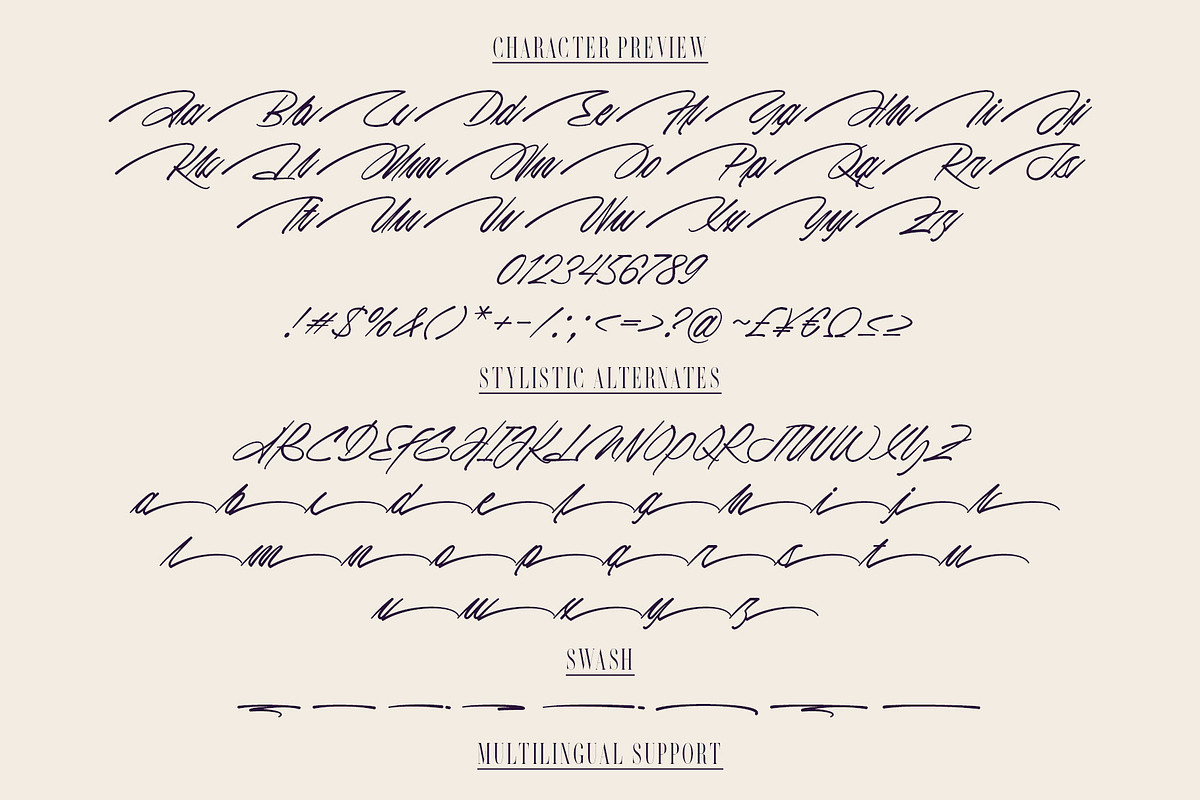 CHARACTER PREVIEW
Aa Bb Cc Dd Ee Ff Gg Hh Ii Jj
Kk Ll Mm Nn Oo Pp Qq Rr Ss
Tt Uu Vv Ww Xx Yy Zz
0123456789
!#$%&()*+-/:;<=>?@~£¥€Ω≤≥
STYLISTIC ALTERNATES
ABCDEFGHIJKLMNOPQRSTUVWXYZ
a b c d e f g h i j k
l m n o p q r s t u
v w x y z
SWASH
MULTILINGUAL SUPPORT